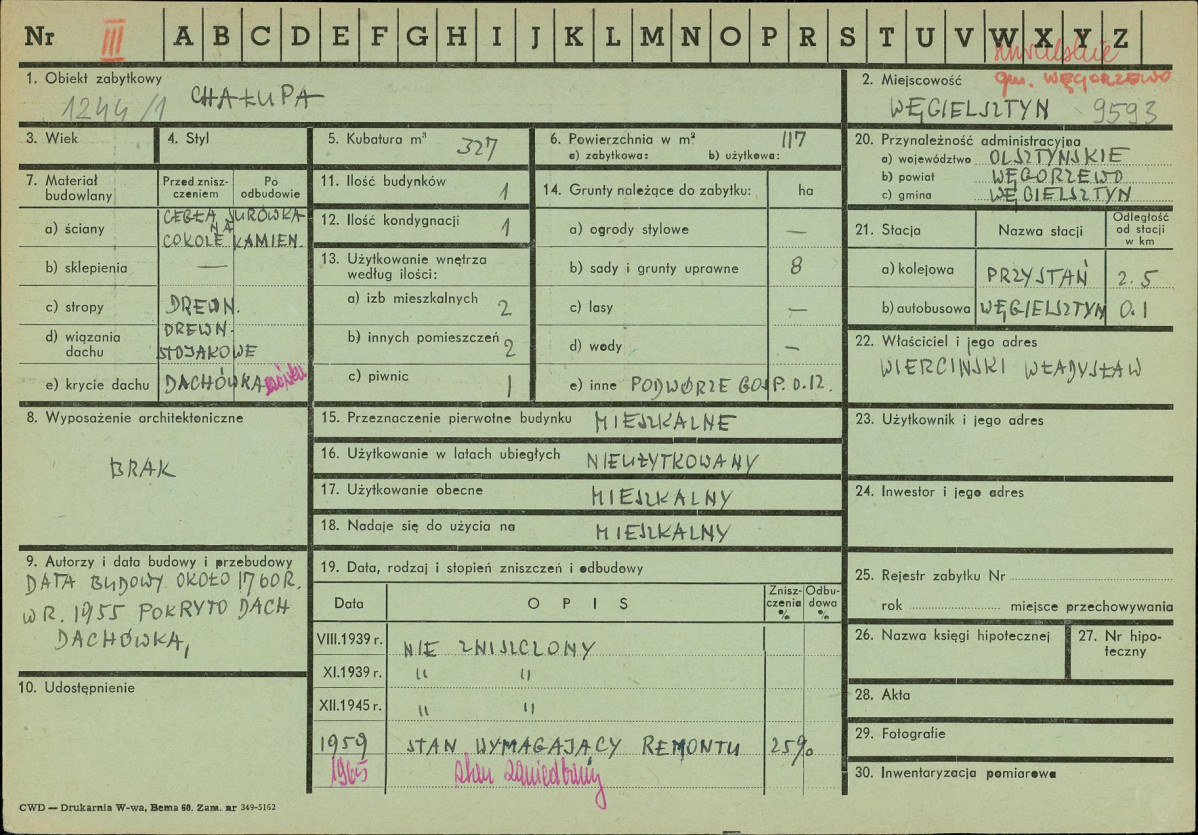 Nr III A B C D E F G H I J K L M N O P R S T U V W X Y Z
suwalskie
gm. WĘGORZEWO
1. Obiekt zabytkowy
1244/1 CHAŁUPA
2. Miejscowość
WĘGIELSZTYN 9593
3. Wiek
4. Styl
5. Kubatura m³ 327
6. Powierzchnia w m² 117
a) zabytkowa: b) użytkowa:
7. Materiał budowlany
Przed znisz-
czeniem
Po
odbudowie
a) ściany CEGŁA SURÓWKA
NA
COKOLE KAMIEN.
b) sklepienia —
c) stropy DREWN.
d) wiązania dachu DREWN.
STOJAKOWE
e) krycie dachu DACHÓWKA
8. Wyposażenie architektoniczne
BRAK
9. Autorzy i data budowy i przebudowy
DATA BUDOWY OKOŁO 1760 R.
W R. 1955 POKRYTO DACH
DACHÓWKĄ,
10. Udostępnienie
11. Ilość budynków 1
12. Ilość kondygnacji 1
13. Użytkowanie wnętrza
według ilości:
a) izb mieszkalnych 2
b) innych pomieszczeń 2
c) piwnic 1
14. Grunty należące do zabytku: ha
a) ogrody stylowe —
b) sady i grunty uprawne 8
c) lasy —
d) wody —
e) inne PODWÓRZE GOSP. 0.12.
15. Przeznaczenie pierwotne budynku MIESZKALNE
16. Użytkowanie w latach ubiegłych NIEUŻYTKOWANY
17. Użytkowanie obecne MIESZKALNY
18. Nadaje się do użycia na MIESZKALNY
19. Data, rodzaj i stopień zniszczeń i odbudowy
Data OPIS
Znisz-
czenia
%
Odbu-
dowa
%
VIII.1939 r. NIE ZNISZCZONY
XI.1939 r. " "
XII.1945 r. " "
1959 STAN WYMAGAJĄCY REMONTU 25%
1965 stan zaniedbany
20. Przynależność administracyjna
a) województwo OLSZTYŃSKIE
b) powiat WĘGORZEWO
c) gmina WĘGIELSZTYN
21. Stacja Nazwa stacji
Odległość
od stacji
w km
a) kolejowa PRZYSTAŃ 2.5
b) autobusowa WĘGIELSZTYN 0.1
22. Właściciel i jego adres
WIERCINSKI WŁADYSŁAW
23. Użytkownik i jego adres
24. Inwestor i jego adres
25. Rejestr zabytku Nr
rok miejsce przechowywania
26. Nazwa księgi hipotecznej
27. Nr hipo-
teczny
28. Akta
29. Fotografie
30. Inwentaryzacja pomiarowa
CWD — Drukarnia W-wa, Bema 60. Zam. nr 349-5162